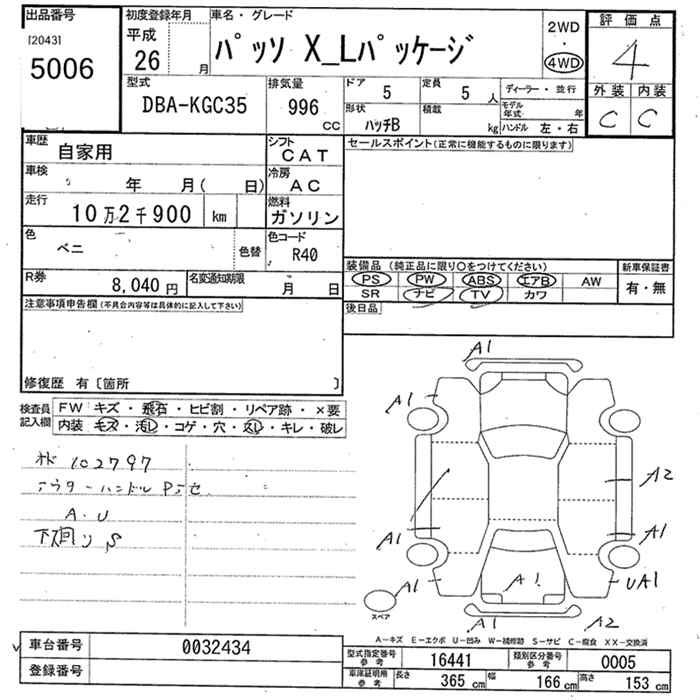 出品番号
[2043]
5006
初度登録年月
平成
26 月
車名・グレード
パッソ X_Lパッケージ
2WD
・
4WD
評価点
4
外装 内装
C C
型式
DBA-KGC35
排気量
996 cc
ドア
5
定員
5 人
形状
ハッチB
積載
kg
ディーラー・並行
モデル年式 年
ハンドル 左・右
車歴
自家用
シフト
CAT
車検
年 月( 日)
冷房
AC
走行
10万2千900 km
燃料
ガソリン
色
ベニ
色替
色コード
R40
R券
8,040円
名変通知期限
月 日
セールスポイント(正常に機能するものに限ります)
装備品 (純正品に限り○をつけてください)
PS PW ABS エアB AW
SR ナビ TV カワ
新車保証書
有・無
後日品
注意事項申告欄(不具合内容等は具体的に記入して下さい)
修復歴 有〔箇所 〕
検査員記入欄
FW キズ・飛石・ヒビ割・リペア跡・×要
内装 キズ・汚レ・コゲ・穴・スレ・キレ・破レ
102797
アウターハンドル
A・U
下回り S
A1
A1
A2
A1
A1
A1
A1
UA1
A1
A2
スペア
A-キズ E-エクボ U-凹み W-補修跡 S-サビ C-腐食 XX-交換済
車台番号
0032434
登録番号
型式指定番号
参考
16441
類別区分番号
参考
0005
車庫証明用
参考
長さ
365 cm
幅
166 cm
高さ
153 cm